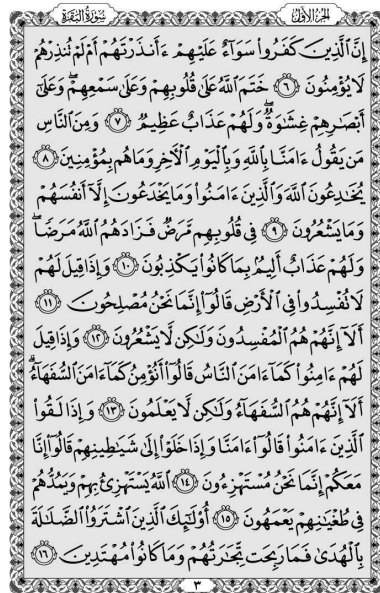 الجزء الأول سورة البقرة
إِنَّ ٱلَّذِينَ كَفَرُوا۟ سَوَآءٌ عَلَيْهِمْ ءَأَنذَرْتَهُمْ أَمْ لَمْ تُنذِرْهُمْ
لَا يُؤْمِنُونَ ﴿٦﴾ خَتَمَ ٱللَّهُ عَلَىٰ قُلُوبِهِمْ وَعَلَىٰ سَمْعِهِمْ ۖ وَعَلَىٰٓ
أَبْصَٰرِهِمْ غِشَٰوَةٌ ۖ وَلَهُمْ عَذَابٌ عَظِيمٌ ﴿٧﴾ وَمِنَ ٱلنَّاسِ
مَن يَقُولُ ءَامَنَّا بِٱللَّهِ وَبِٱلْيَوْمِ ٱلْءَاخِرِ وَمَا هُم بِمُؤْمِنِينَ ﴿٨﴾
يُخَٰدِعُونَ ٱللَّهَ وَٱلَّذِينَ ءَامَنُوا۟ وَمَا يَخْدَعُونَ إِلَّآ أَنفُسَهُمْ
وَمَا يَشْعُرُونَ ﴿٩﴾ فِى قُلُوبِهِم مَّرَضٌ فَزَادَهُمُ ٱللَّهُ مَرَضًا ۖ
وَلَهُمْ عَذَابٌ أَلِيمٌۢ بِمَا كَانُوا۟ يَكْذِبُونَ ﴿١٠﴾ وَإِذَا قِيلَ لَهُمْ
لَا تُفْسِدُوا۟ فِى ٱلْأَرْضِ قَالُوٓا۟ إِنَّمَا نَحْنُ مُصْلِحُونَ ﴿١١﴾
أَلَآ إِنَّهُمْ هُمُ ٱلْمُفْسِدُونَ وَلَٰكِن لَّا يَشْعُرُونَ ﴿١٢﴾ وَإِذَا قِيلَ
لَهُمْ ءَامِنُوا۟ كَمَآ ءَامَنَ ٱلنَّاسُ قَالُوٓا۟ أَنُؤْمِنُ كَمَآ ءَامَنَ ٱلسُّفَهَآءُ ۗ
أَلَآ إِنَّهُمْ هُمُ ٱلسُّفَهَآءُ وَلَٰكِن لَّا يَعْلَمُونَ ﴿١٣﴾ وَإِذَا لَقُوا۟
ٱلَّذِينَ ءَامَنُوا۟ قَالُوٓا۟ ءَامَنَّا وَإِذَا خَلَوْا۟ إِلَىٰ شَيَٰطِينِهِمْ قَالُوٓا۟ إِنَّا
مَعَكُمْ إِنَّمَا نَحْنُ مُسْتَهْزِءُونَ ﴿١٤﴾ ٱللَّهُ يَسْتَهْزِئُ بِهِمْ وَيَمُدُّهُمْ
فِى طُغْيَٰنِهِمْ يَعْمَهُونَ ﴿١٥﴾ أُو۟لَٰٓئِكَ ٱلَّذِينَ ٱشْتَرَوُا۟ ٱلضَّلَٰلَةَ
بِٱلْهُدَىٰ فَمَا رَبِحَت تِّجَٰرَتُهُمْ وَمَا كَانُوا۟ مُهْتَدِينَ ﴿١٦﴾
٣